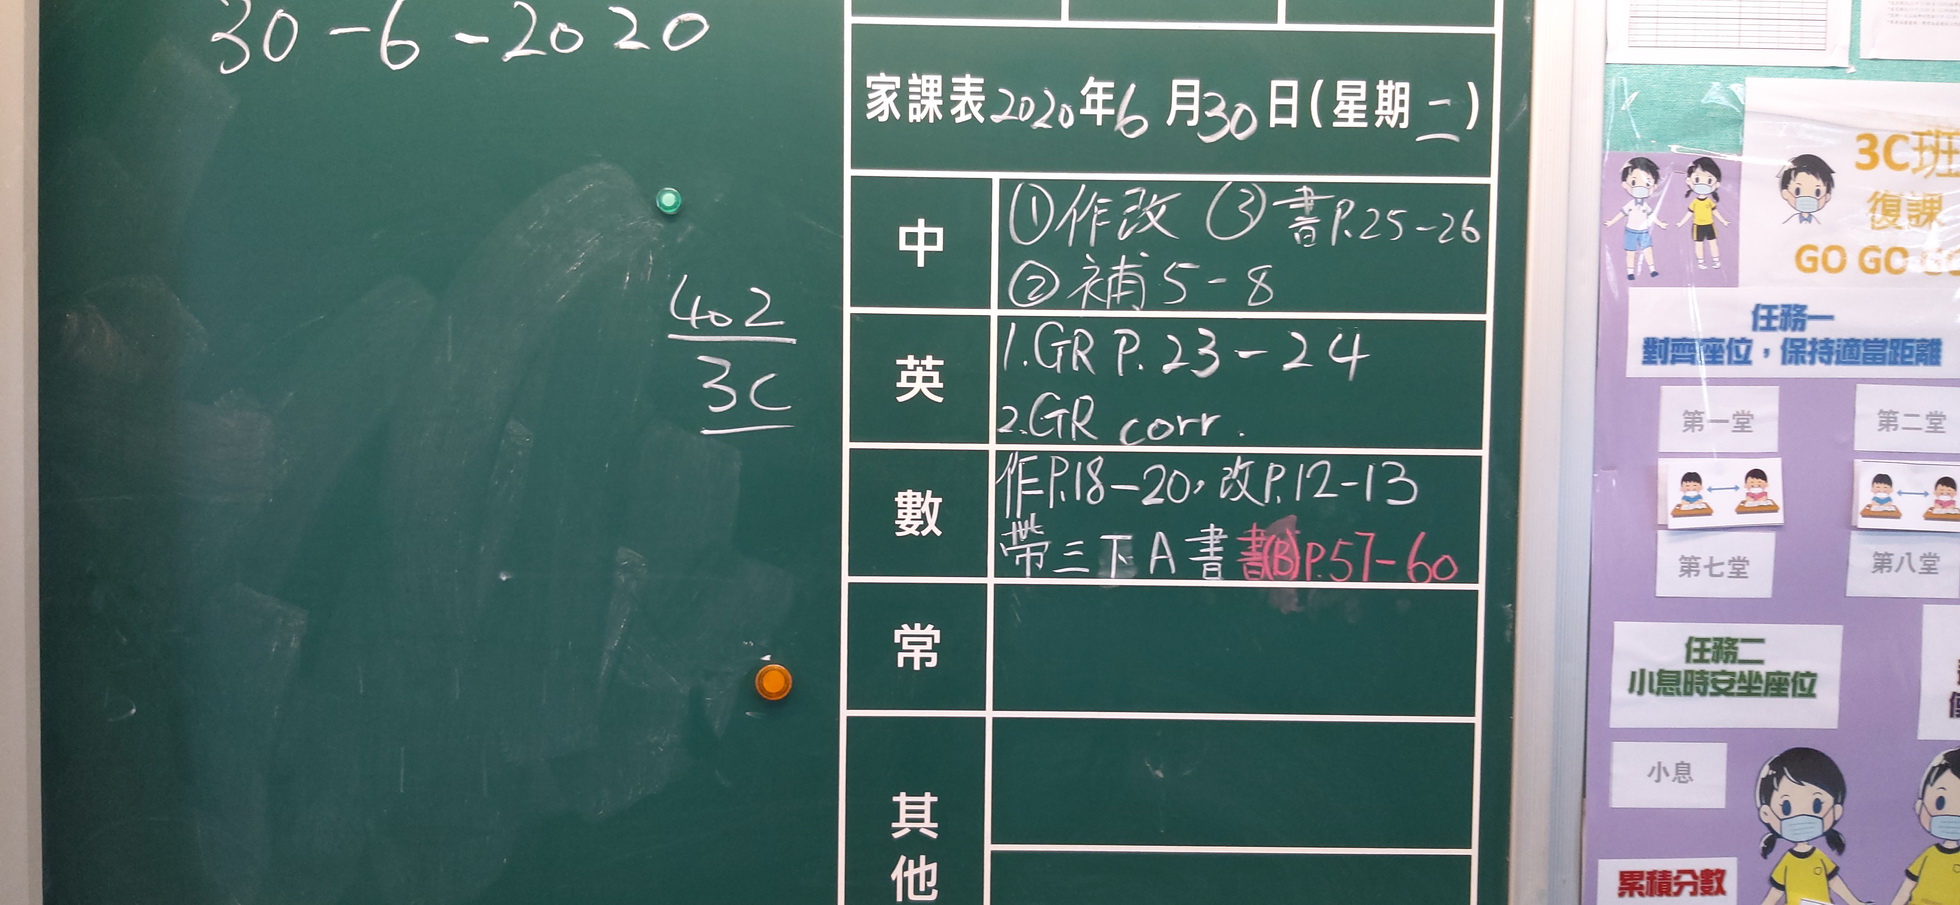 30-6-2020
402
3C
家課表2020年6月30日(星期二)
中
①作改 ③書P.25-26
②補5-8
英
1.GR P.23-24
2.GR corr.
數
作P.18-20,改P.12-13
帶三下A書 書(B)P.57-60
常
其他
3C班
復課
GO GO
任務一
對齊座位，保持適當距離
第一堂
第二堂
第七堂
第八堂
任務二
小息時安坐座位
小息
累積分數